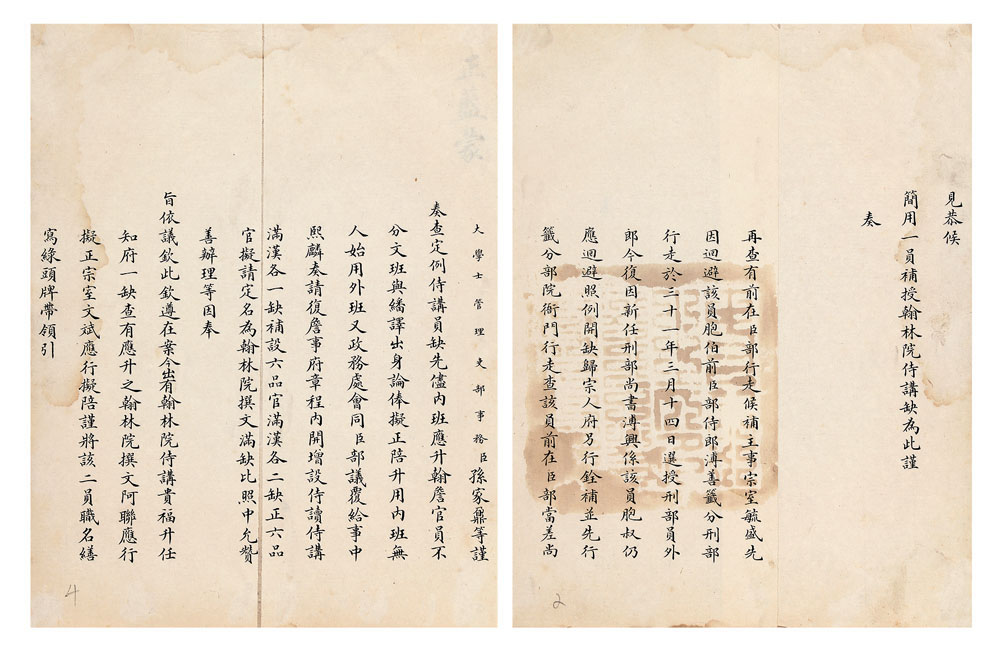 大學士管理吏部事務臣孫家鼐等謹
奏查定例侍講員缺先儘內班應升翰詹官員不
分文班與繙譯出身論俸擬正陪升用內班無
人始用外班又政務處會同臣部議覆給事中
熙麟奏請復詹事府章程內開增設侍讀侍講
滿漢各一缺補設六品官滿漢各二缺正六品
官擬請定名為翰林院撰文滿缺比照中允贊
善辦理等因奉
旨依議欽此欽遵在案今出有翰林院侍講貴福升任
知府一缺查有應升之翰林院撰文阿聯應行
擬正宗室文斌應行擬陪謹將該二員職名繕
寫綠頭牌帶領引
4
見恭候
簡用一員補授翰林院侍講缺為此謹
奏
再查有前在臣部行走候補主事宗室毓盛先
因迴避該員胞伯前臣部侍郎溥善籤分刑部
行走於三十一年三月十四日選授刑部員外
郎今復因新任刑部尚書溥興係該員胞叔仍
應迴避照例開缺歸宗人府另行銓補並先行
籤分部院衙門行走查該員前在臣部當差尚
2